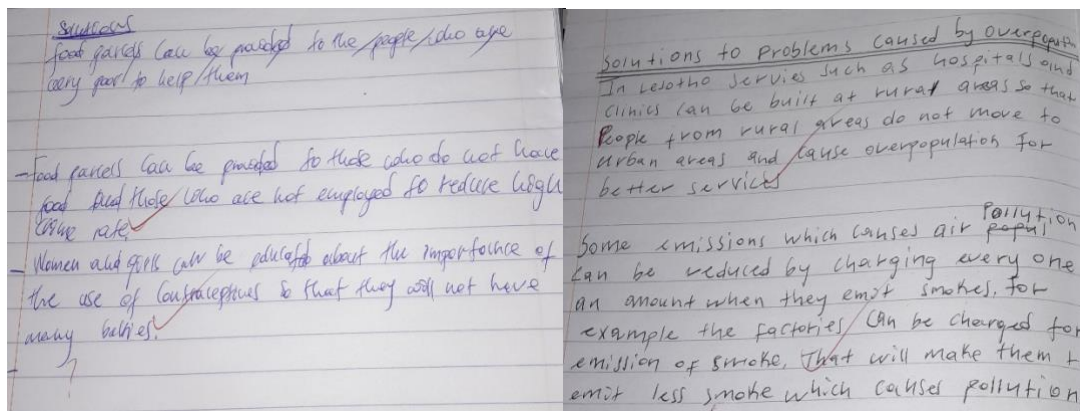 Solutions
food parcels can be provided to the people who are
very poor to help them
- Food parcels can be provided to those who do not have
food and those who are not employed to reduce high
crime rate.
- Women and girls can be educated about the importance of
the use of Contraceptives so that they will not have
many babies.
Solutions to problems caused by overpopulation
In Lesotho servies such as hospitals and
clinics can be built at rural areas so that
People from rural areas do not move to
urban areas and cause overpopulation for
better services
Some emissions which causes air Pollution
can be reduced by charging every one
an amount when they emit smokes, for
example the factories can be charged for
emission of smoke. That will make them
emit less smoke which causes pollution